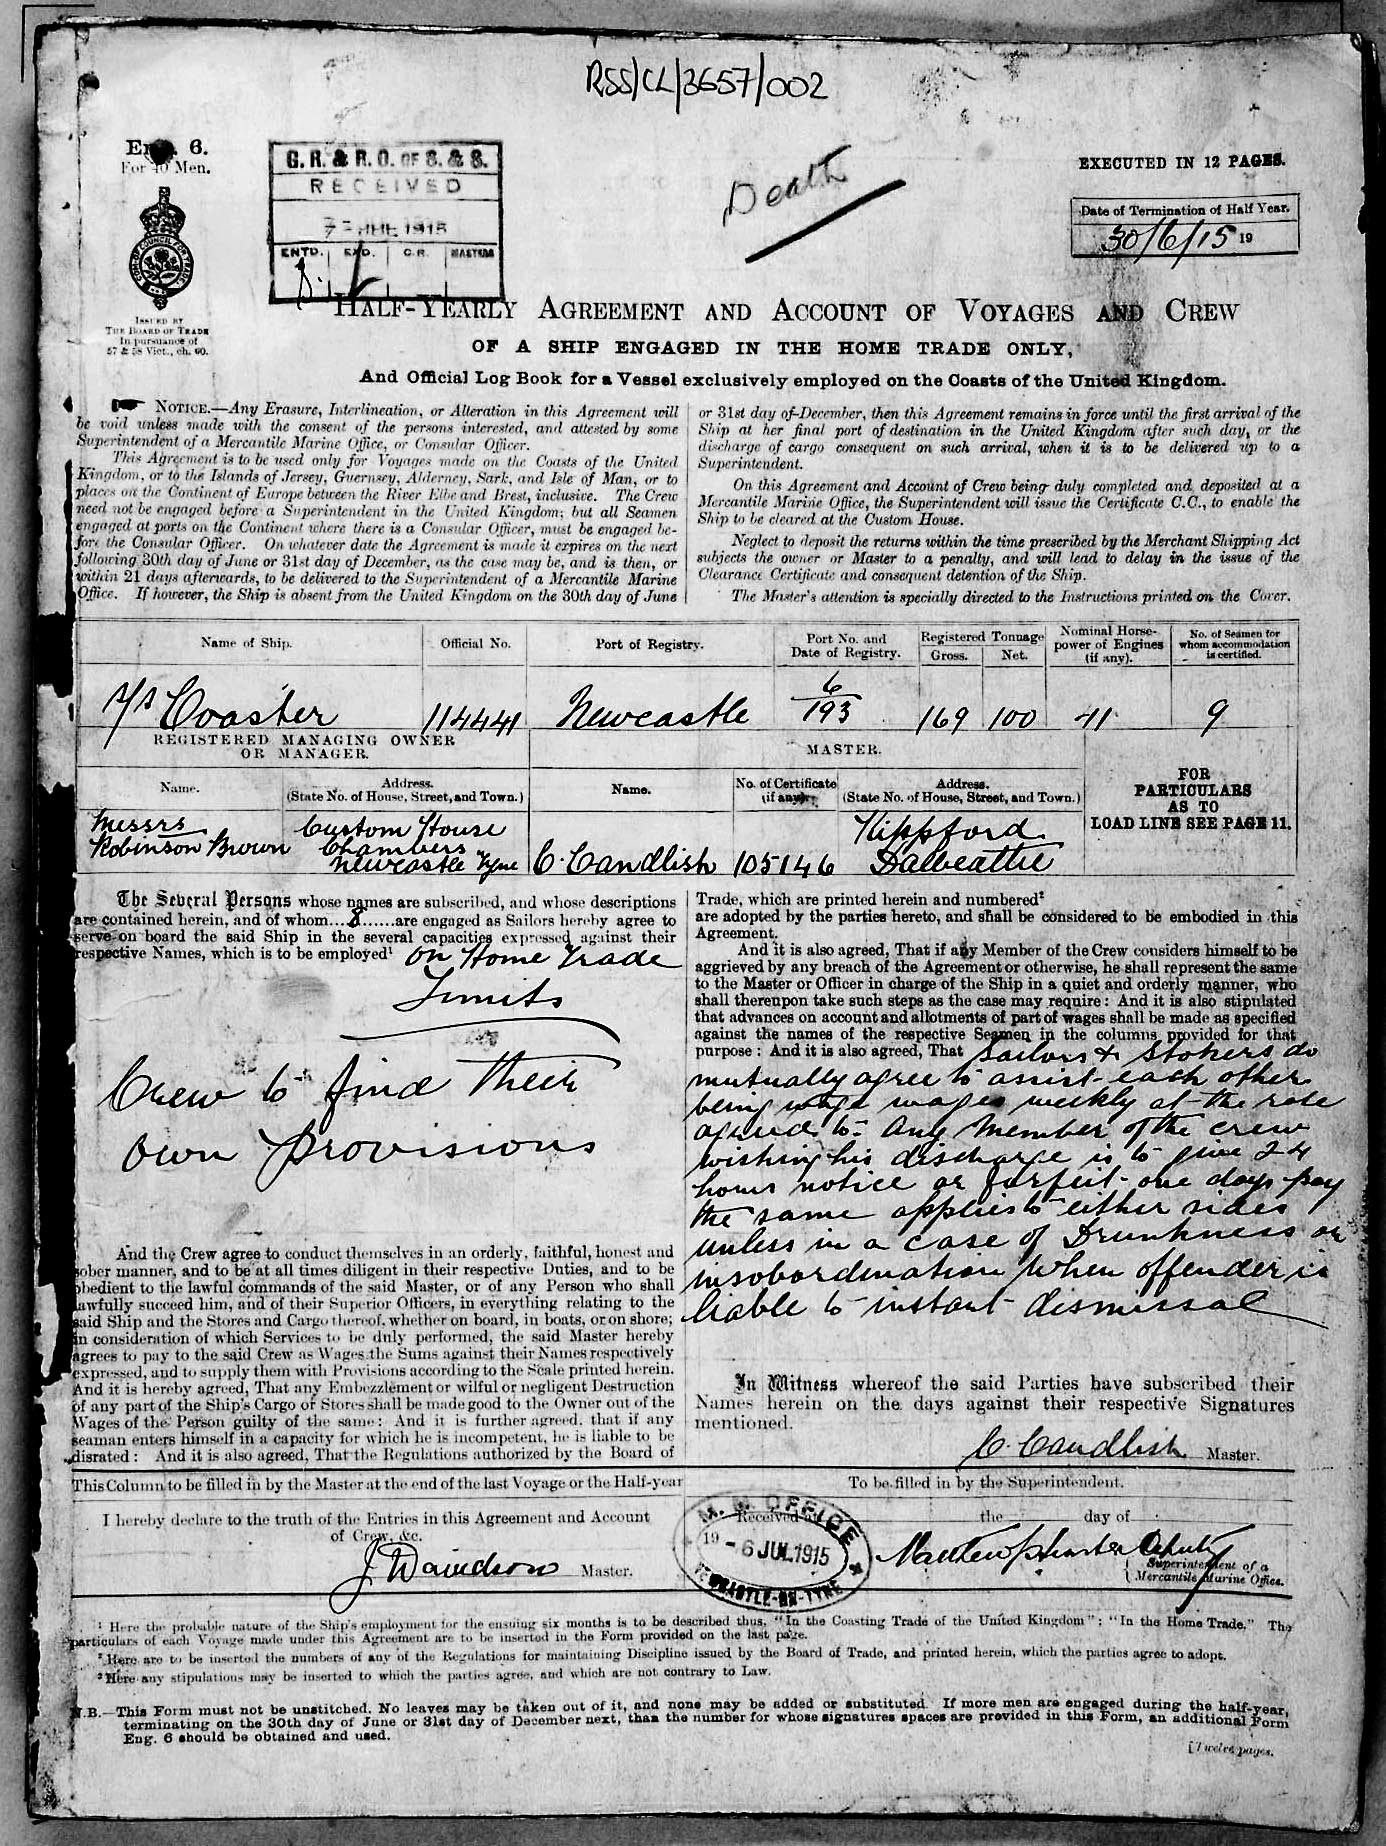 RSS/CL/3657/002
Eng. 6.
For 40 Men.
ISSUED BY
THE BOARD OF TRADE
In pursuance of
57 & 58 Vict., ch. 60.
G. R. & R. O. OF S. & S.
RECEIVED
1915
ENTD. EXD. C.R. MASTERS
Death
EXECUTED IN 12 PAGES.
Date of Termination of Half Year.
30/6/15 19
HALF-YEARLY AGREEMENT AND ACCOUNT OF VOYAGES AND CREW
OF A SHIP ENGAGED IN THE HOME TRADE ONLY,
And Official Log Book for a Vessel exclusively employed on the Coasts of the United Kingdom.
NOTICE.—Any Erasure, Interlineation, or Alteration in this Agreement will
be void unless made with the consent of the persons interested, and attested by some
Superintendent of a Mercantile Marine Office, or Consular Officer.
This Agreement is to be used only for Voyages made on the Coasts of the United
Kingdom, or to the Islands of Jersey, Guernsey, Alderney, Sark, and Isle of Man, or to
places on the Continent of Europe between the River Elbe and Brest, inclusive. The Crew
need not be engaged before a Superintendent in the United Kingdom; but all Seamen
engaged at ports on the Continent where there is a Consular Officer, must be engaged be-
fore the Consular Officer. On whatever date the Agreement is made it expires on the next
following 30th day of June or 31st day of December, as the case may be, and is then, or
within 21 days afterwards, to be delivered to the Superintendent of a Mercantile Marine
Office. If however, the Ship is absent from the United Kingdom on the 30th day of June
or 31st day of December, then this Agreement remains in force until the first arrival of the
Ship at her final port of destination in the United Kingdom after such day, or the
discharge of cargo consequent on such arrival, when it is to be delivered up to a
Superintendent.
On this Agreement and Account of Crew being duly completed and deposited at a
Mercantile Marine Office, the Superintendent will issue the Certificate C.C., to enable the
Ship to be cleared at the Custom House.
Neglect to deposit the returns within the time prescribed by the Merchant Shipping Act
subjects the owner or Master to a penalty, and will lead to delay in the issue of the
Clearance Certificate and consequent detention of the Ship.
The Master's attention is specially directed to the Instructions printed on the Cover.
Name of Ship. Official No. Port of Registry. Port No. and Date of Registry. Registered Tonnage Gross. Net. Nominal Horse-power of Engines (if any). No. of Seamen for whom accommodation is certified.
Coaster 114441 Newcastle 6/193 169 100 41 9
REGISTERED MANAGING OWNER
OR MANAGER.
MASTER.
Name. Address. (State No. of House, Street, and Town.) Name. No. of Certificate (if any). Address. (State No. of House, Street, and Town.)
FOR
PARTICULARS
AS TO
LOAD LINE SEE PAGE 11.
Messrs Custom House Kippford
Robinson Brown Chambers
Newcastle Tyne C. Candlish 105146 Dalbeattie
The Several Persons whose names are subscribed, and whose descriptions
are contained herein, and of whom...8......are engaged as Sailors hereby agree to
serve on board the said Ship in the several capacities expressed against their
respective Names, which is to be employed¹ on Home Trade
Limits
Crew to find their
own provisions
And the Crew agree to conduct themselves in an orderly, faithful, honest and
sober manner, and to be at all times diligent in their respective Duties, and to be
obedient to the lawful commands of the said Master, or of any Person who shall
lawfully succeed him, and of their Superior Officers, in everything relating to the
said Ship and the Stores and Cargo thereof, whether on board, in boats, or on shore;
in consideration of which Services to be duly performed, the said Master hereby
agrees to pay to the said Crew as Wages the Sums against their Names respectively
expressed, and to supply them with Provisions according to the Scale printed herein.
And it is hereby agreed, That any Embezzlement or wilful or negligent Destruction
of any part of the Ship's Cargo or Stores shall be made good to the Owner out of the
Wages of the Person guilty of the same: And it is further agreed, that if any
seaman enters himself in a capacity for which he is incompetent, he is liable to be
disrated: And it is also agreed, That the Regulations authorized by the Board of
Trade, which are printed herein and numbered²
are adopted by the parties hereto, and shall be considered to be embodied in this
Agreement.
And it is also agreed, That if any Member of the Crew considers himself to be
aggrieved by any breach of the Agreement or otherwise, he shall represent the same
to the Master or Officer in charge of the Ship in a quiet and orderly manner, who
shall thereupon take such steps as the case may require: And it is also stipulated
that advances on account and allotments of part of wages shall be made as specified
against the names of the respective Seamen in the columns provided for that
purpose: And it is also agreed, That Sailors & Stokers do
mutually agree to assist each other
being wages weekly at the rate
agreed to. Any Member of the crew
wishing his discharge is to give 24
hours notice or forfeit one days pay
the same applies to either sides
unless in a case of Drunkness or
insobordination when offender is
liable to instant dismissal
In Witness whereof the said Parties have subscribed their
Names herein on the days against their respective Signatures
mentioned.
C. Candlish Master.
This Column to be filled in by the Master at the end of the last Voyage or the Half-year
I hereby declare to the truth of the Entries in this Agreement and Account
of Crew, &c.
J Davidson Master.
To be filled in by the Superintendent.
Received at the day of
19
M. M. OFFICE
- 6 JUL 1915
NEWCASTLE-ON-TYNE
Deputy
Superintendent of a
Mercantile Marine Office.
¹ Here the probable nature of the Ship's employment for the ensuing six months is to be described thus, "In the Coasting Trade of the United Kingdom": "In the Home Trade." The
particulars of each Voyage made under this Agreement are to be inserted in the Form provided on the last page.
² Here are to be inserted the numbers of any of the Regulations for maintaining Discipline issued by the Board of Trade, and printed herein, which the parties agree to adopt.
³ Here any stipulations may be inserted to which the parties agree, and which are not contrary to Law.
N.B.—This Form must not be unstitched. No leaves may be taken out of it, and none may be added or substituted. If more men are engaged during the half-year,
terminating on the 30th day of June or 31st day of December next, than the number for whose signatures spaces are provided in this Form, an additional Form
Eng. 6 should be obtained and used.
[Twelve pages.